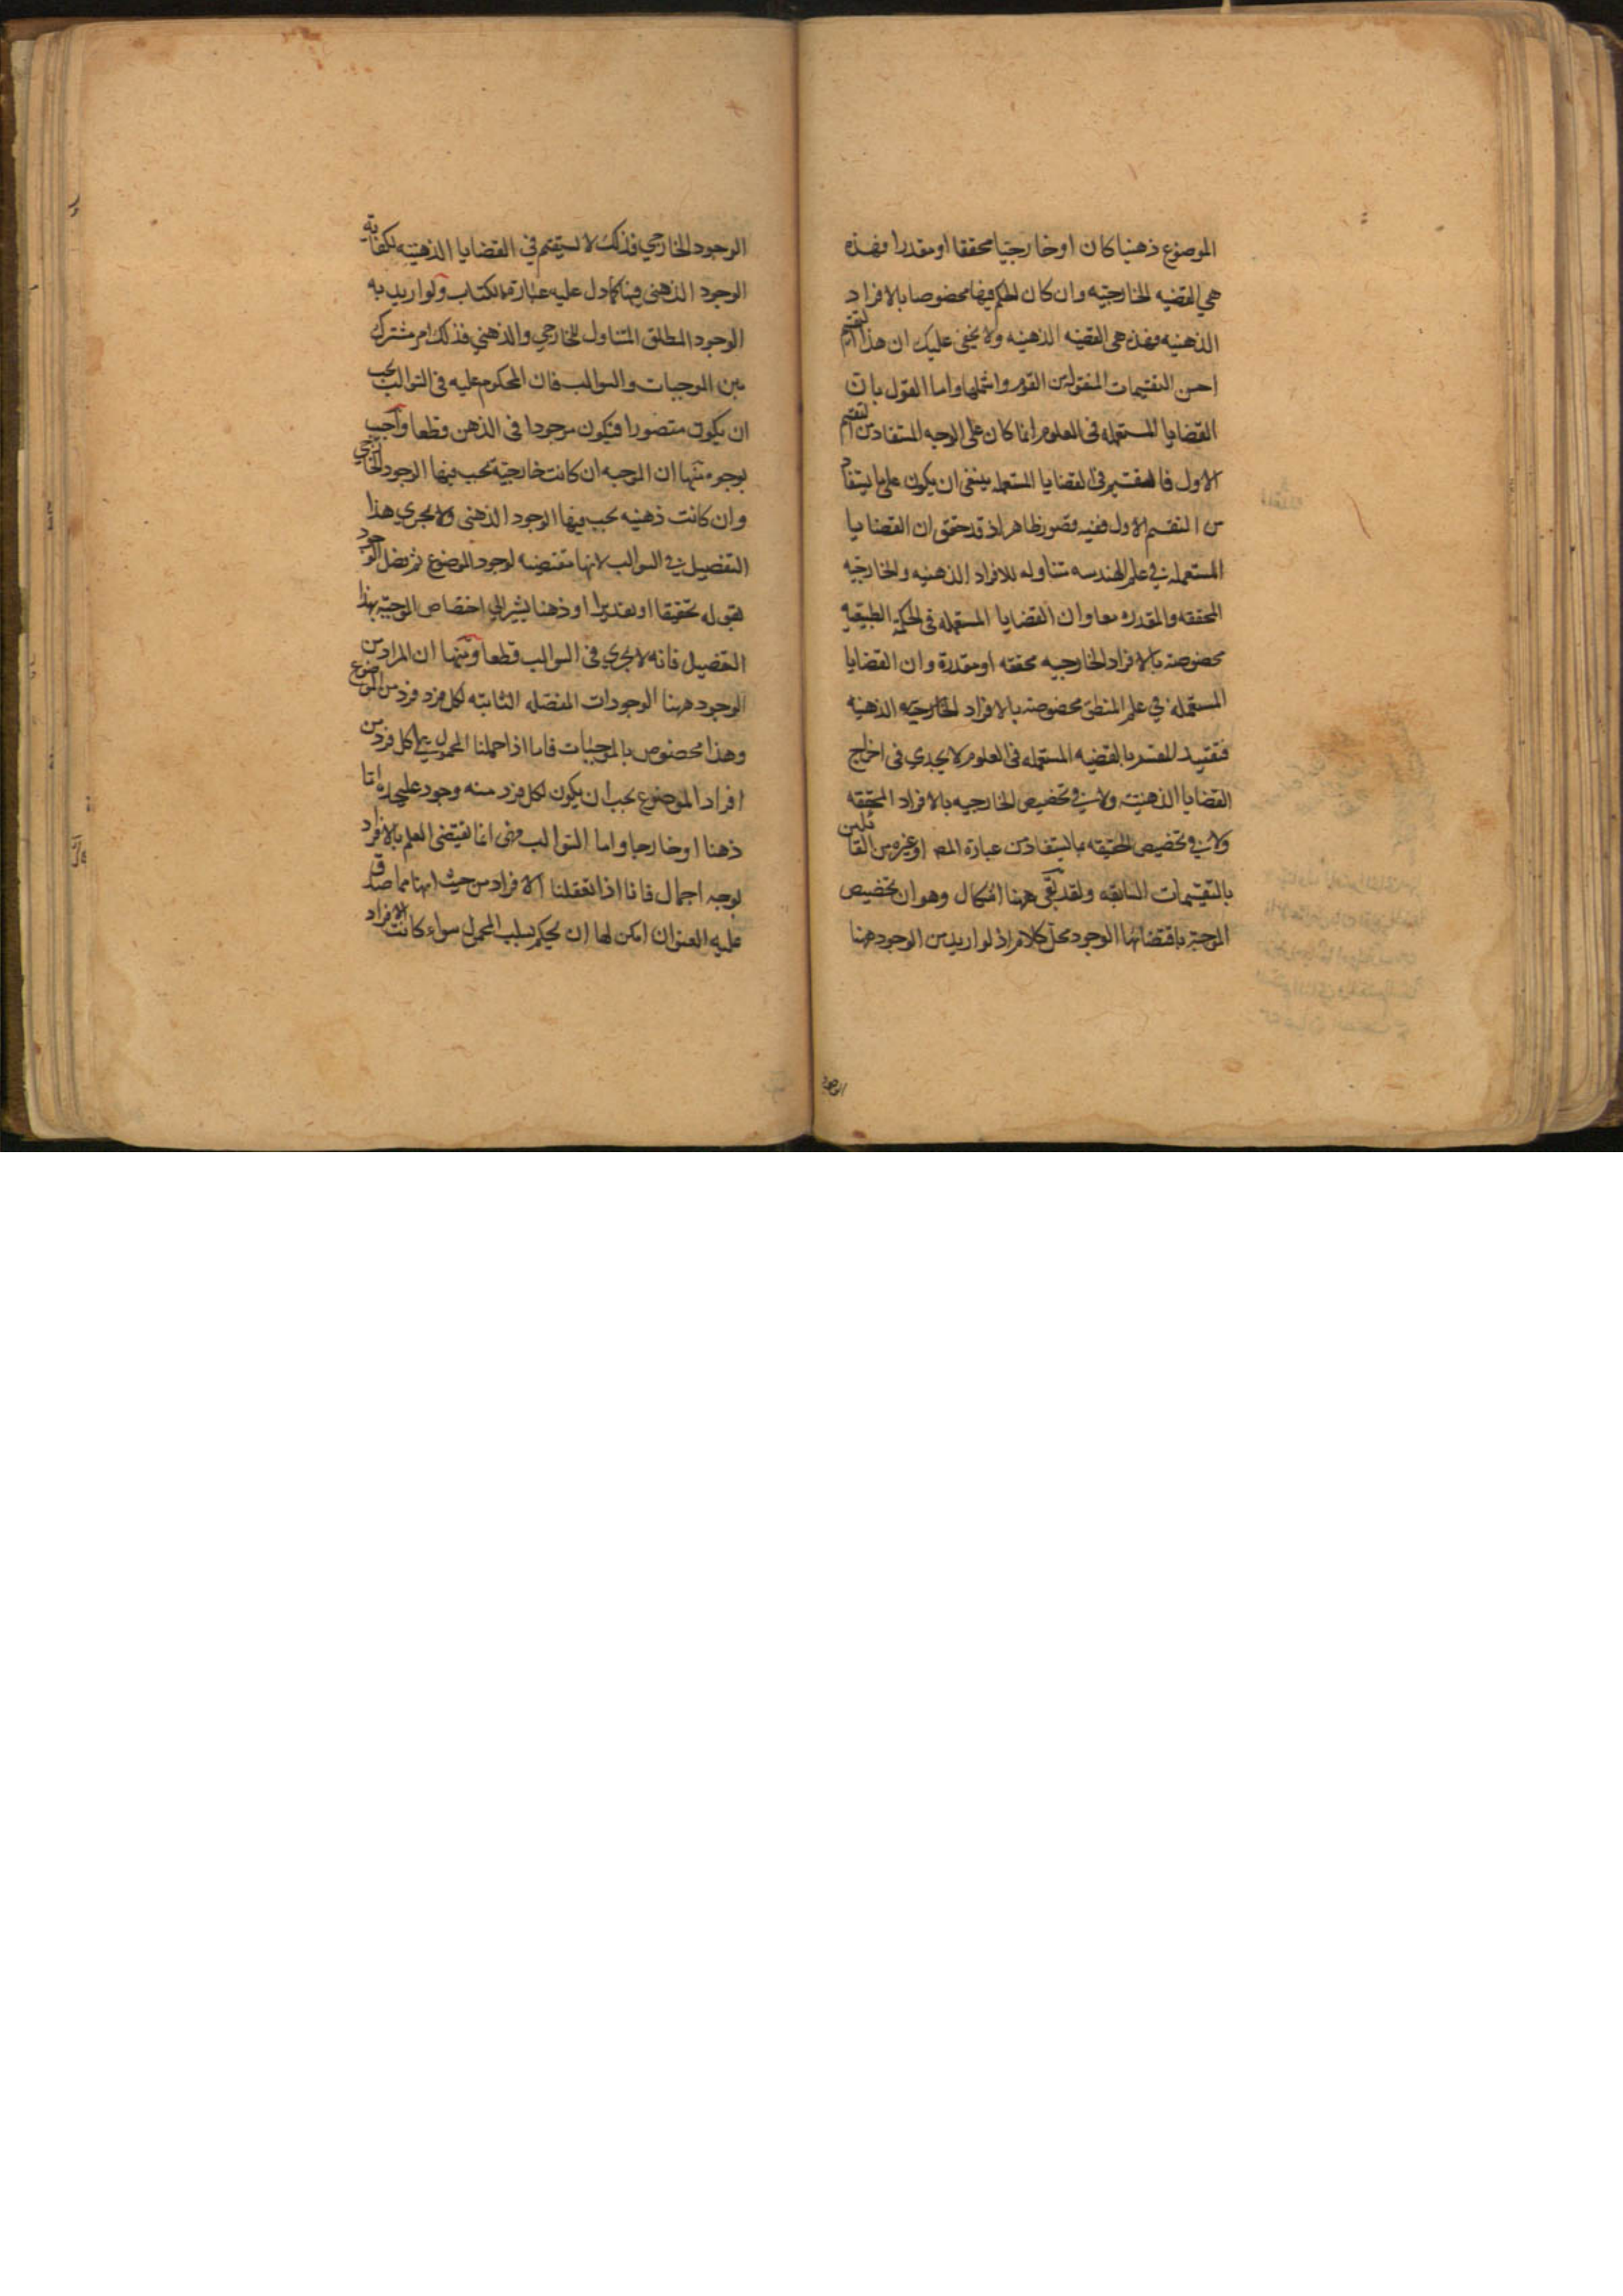 الموضوع ذهنيا كان او خارجيا محققا او مقدرا فهذه
هي القضيه الخارجيه وان كان الحكم فيها مخصوصا بالافراد
الذهنيه فهذه هي القضيه الذهنيه ولا يخفى عليك ان هذا التقسيم
احسن التقسيمات المنقوله من القوم واشملها واما القول بان
القضايا المستعمله في العلوم انما كان على الوجه المستفاد من التقسيم
الاول فالمقسم في القضايا المستعمله ينبغي ان يكون على ما يستفاد
من التقسيم الاول ففيه قصور ظاهر اذ قد تحقق ان القضايا
المستعمله في علم الهندسه متناوله للافراد الذهنيه والخارجيه
المحققه والمقدره معا وان القضايا المستعمله في الحكمة الطبيعيه
مخصوصه بالافراد الخارجيه محققه او مقدرة وان القضايا
المستعمله في علم المنطق مخصوصه بالافراد الذهنيه
فتقييد المقسم بالقضيه المستعمله في العلوم لا يجدي في اخراج
القضايا الذهنيه ولا في تخصيص الخارجيه بالافراد المحققه
ولا في تخصيص الحقيقه بما يستفاد من عبارة المص او غيره من القائلين
بالتقسيمات السابقه ولقد بقى ههنا اشكال وهو ان تخصيص
الموجبة باقتضائها الوجود محل كلام اذ لو اريد من الوجود ههنا
الوجود الخارجي فذلك لا يستقيم في القضايا الذهنيه لكفاية
الوجود الذهني فيها كما دل عليه عبارة الكتاب ولو اريد به
الوجود المطلق المتناول للخارجي والذهني فذلك امر مشترك
بين الموجبات والسوالب فان المحكوم عليه في السوالب يجب
ان يكون متصورا فيكون موجودا في الذهن قطعا واجيب
بوجوه منها ان الموجبه ان كانت خارجية يجب فيها الوجود الخارجي
وان كانت ذهنيه يجب فيها الوجود الذهني ولا يجري هذا
التفصيل في السوالب لانها مقتضيه لوجود الموضوع ثم فصل الوجود
بقوله تحقيقا او تقديرا او ذهنا يشير الى اختصاص الموجبة بهذا
التفصيل فانه لا يجري في السوالب قطعا ومنها ان المراد من
الوجود ههنا الوجودات المفصله الثابته لكل فرد فرد من الموضوع
وهذا مخصوص بالموجبات فاما اذا حملنا المحمول على كل فرد من
افراد الموضوع يجب ان يكون لكل فرد منه وجود عليحده اما
ذهنا او خارجا واما السوالب فهي انما تقتضي العلم بالافراد
بوجه اجمال فانا اذا تعقلنا الافراد من حيث انها مما صدق
عليه العنوان امكن لها ان يحكم بسلب المحمول سواء كانت الافراد